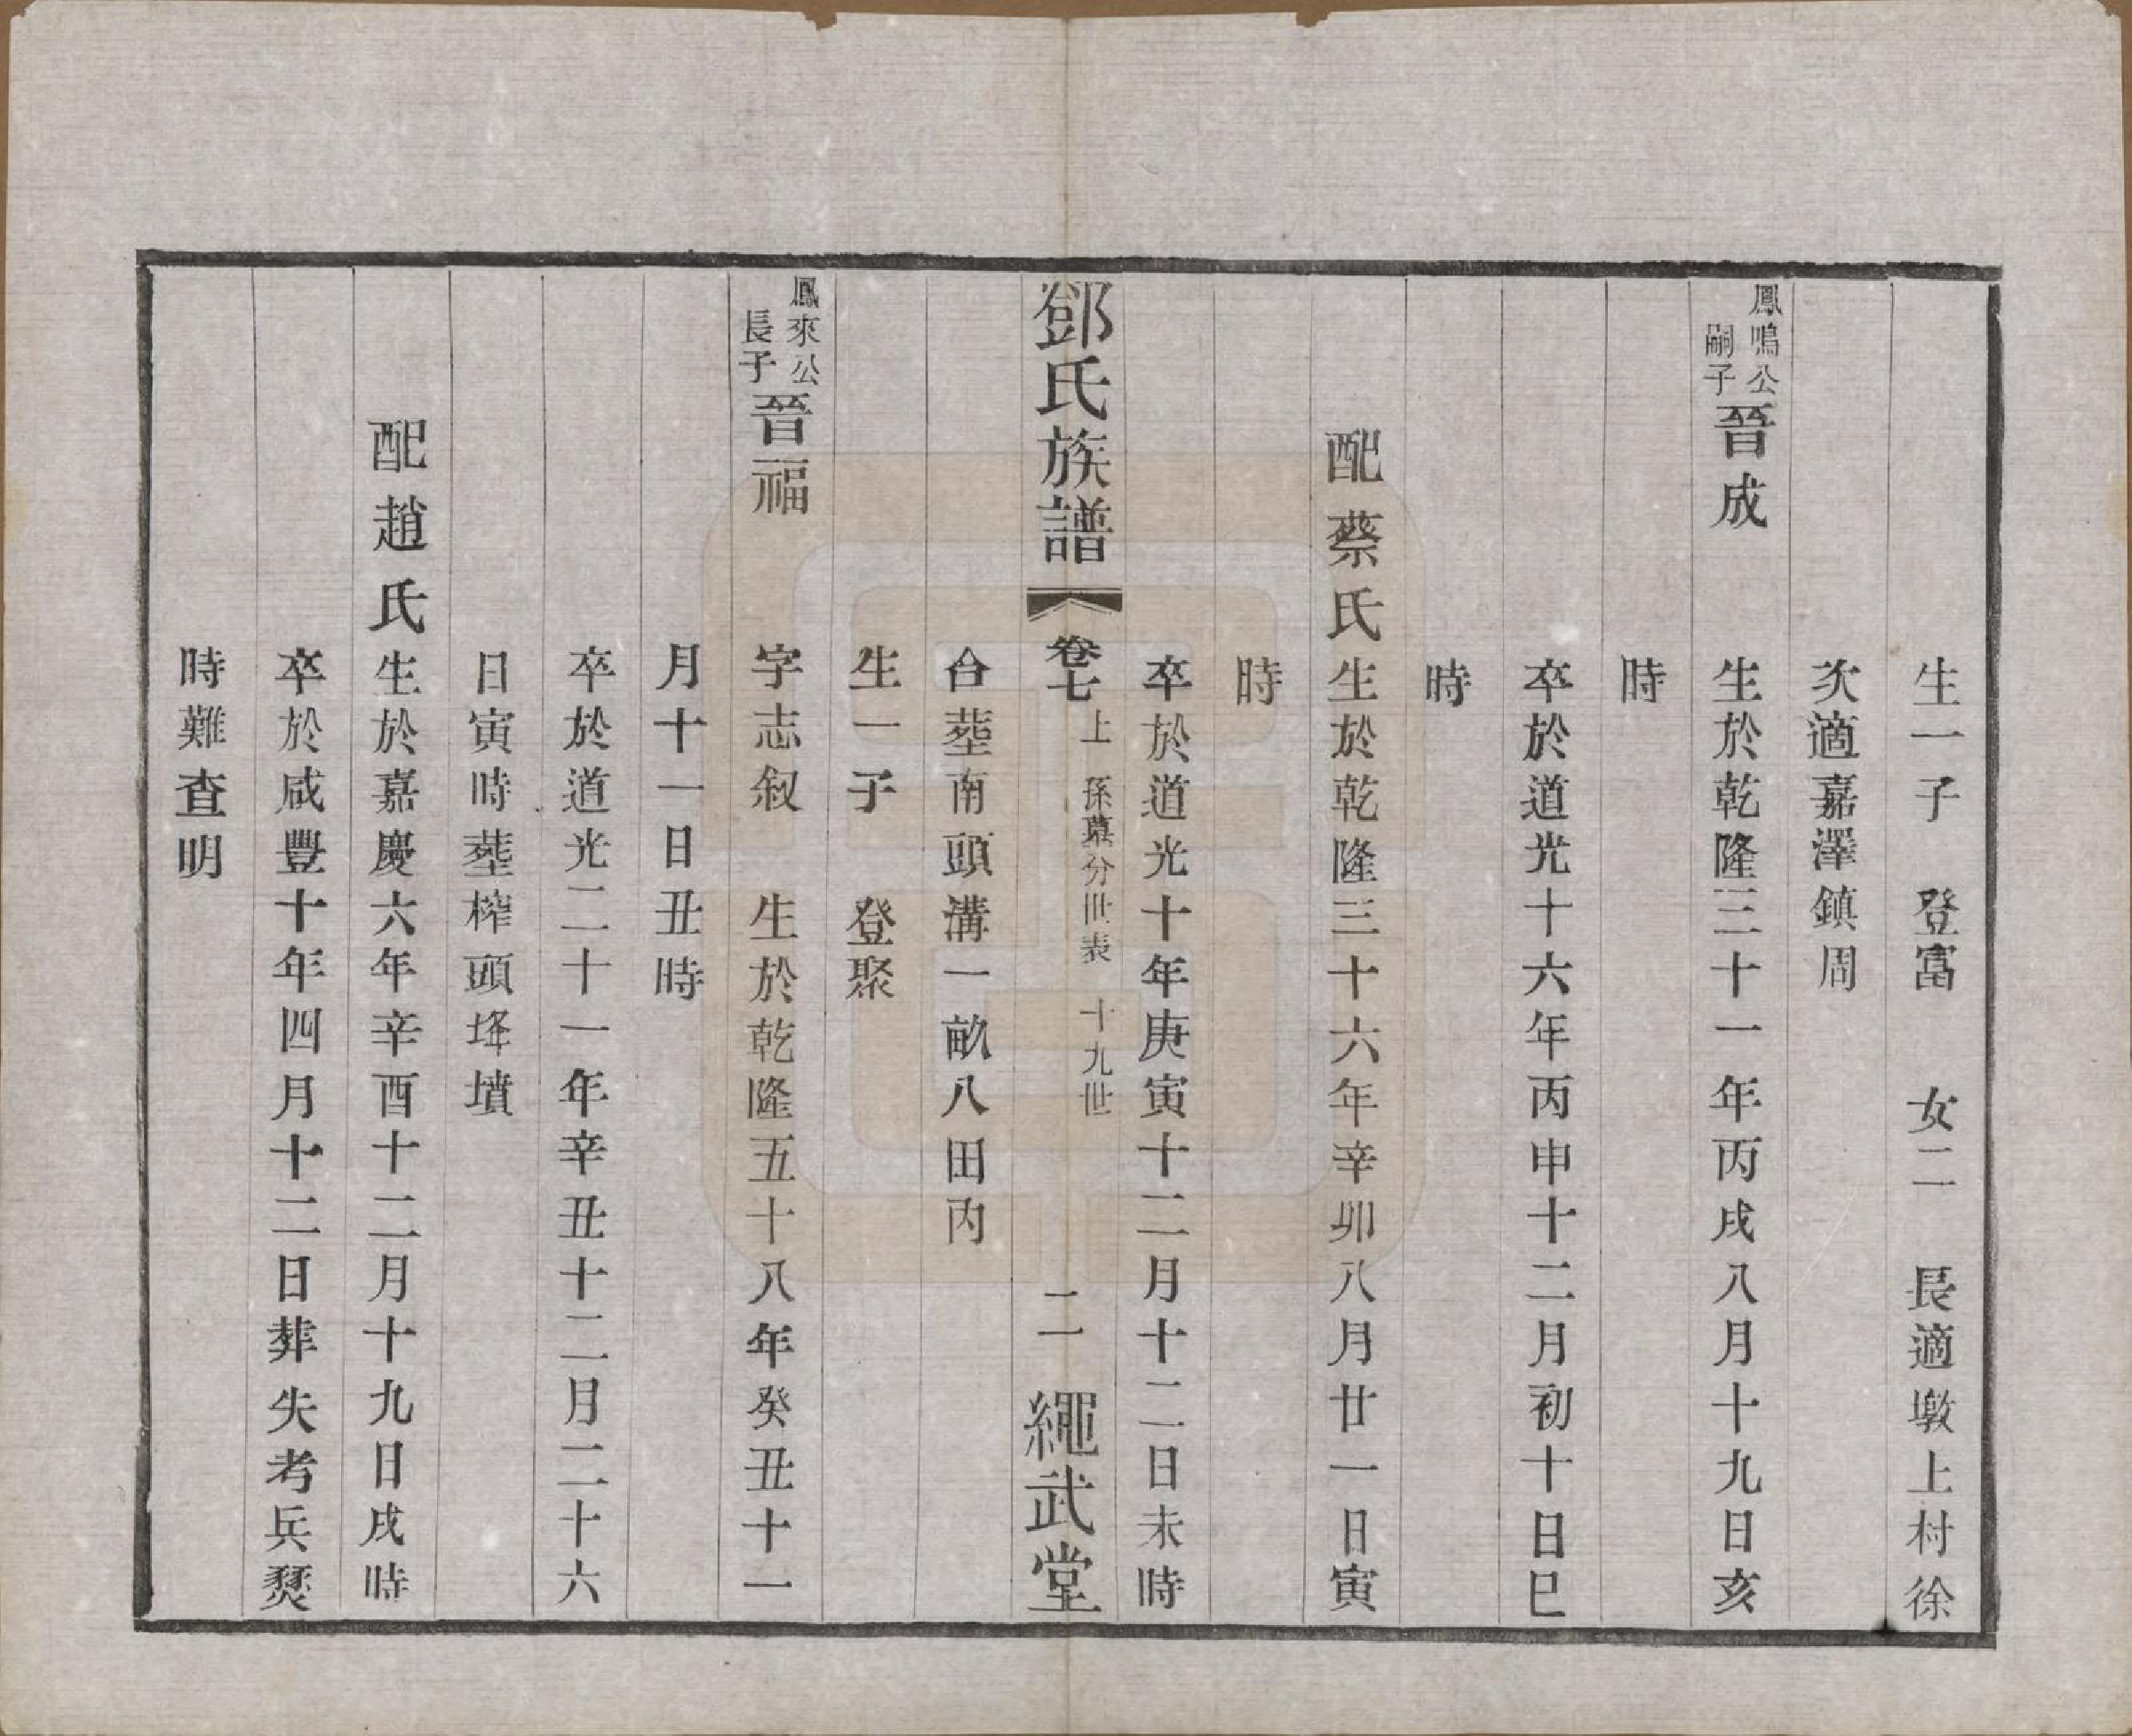 生一子　登富　女二　長適墩上村徐
次適嘉澤鎮周
鳳鳴公嗣子晉成　生於乾隆三十一年丙戌八月十九日亥
時
卒於道光十六年丙申十二月初十日巳
時
配蔡氏生於乾隆三十六年辛卯八月廿一日寅
時
卒於道光十年庚寅十二月十二日未時
鄧氏族譜　卷七上　孫墓分世表　十九世　二　繩武堂
合塟南頭溝一畝八田內
生一子　登聚
鳳來公長子晉福　字志叙　生於乾隆五十八年癸丑十一
月十一日丑時
卒於道光二十一年辛丑十二月二十六
日寅時塟榨頭垾墳
配趙氏生於嘉慶六年辛酉十二月十九日戌時
卒於咸豐十年四月十二日葬失考兵燹
時難查明